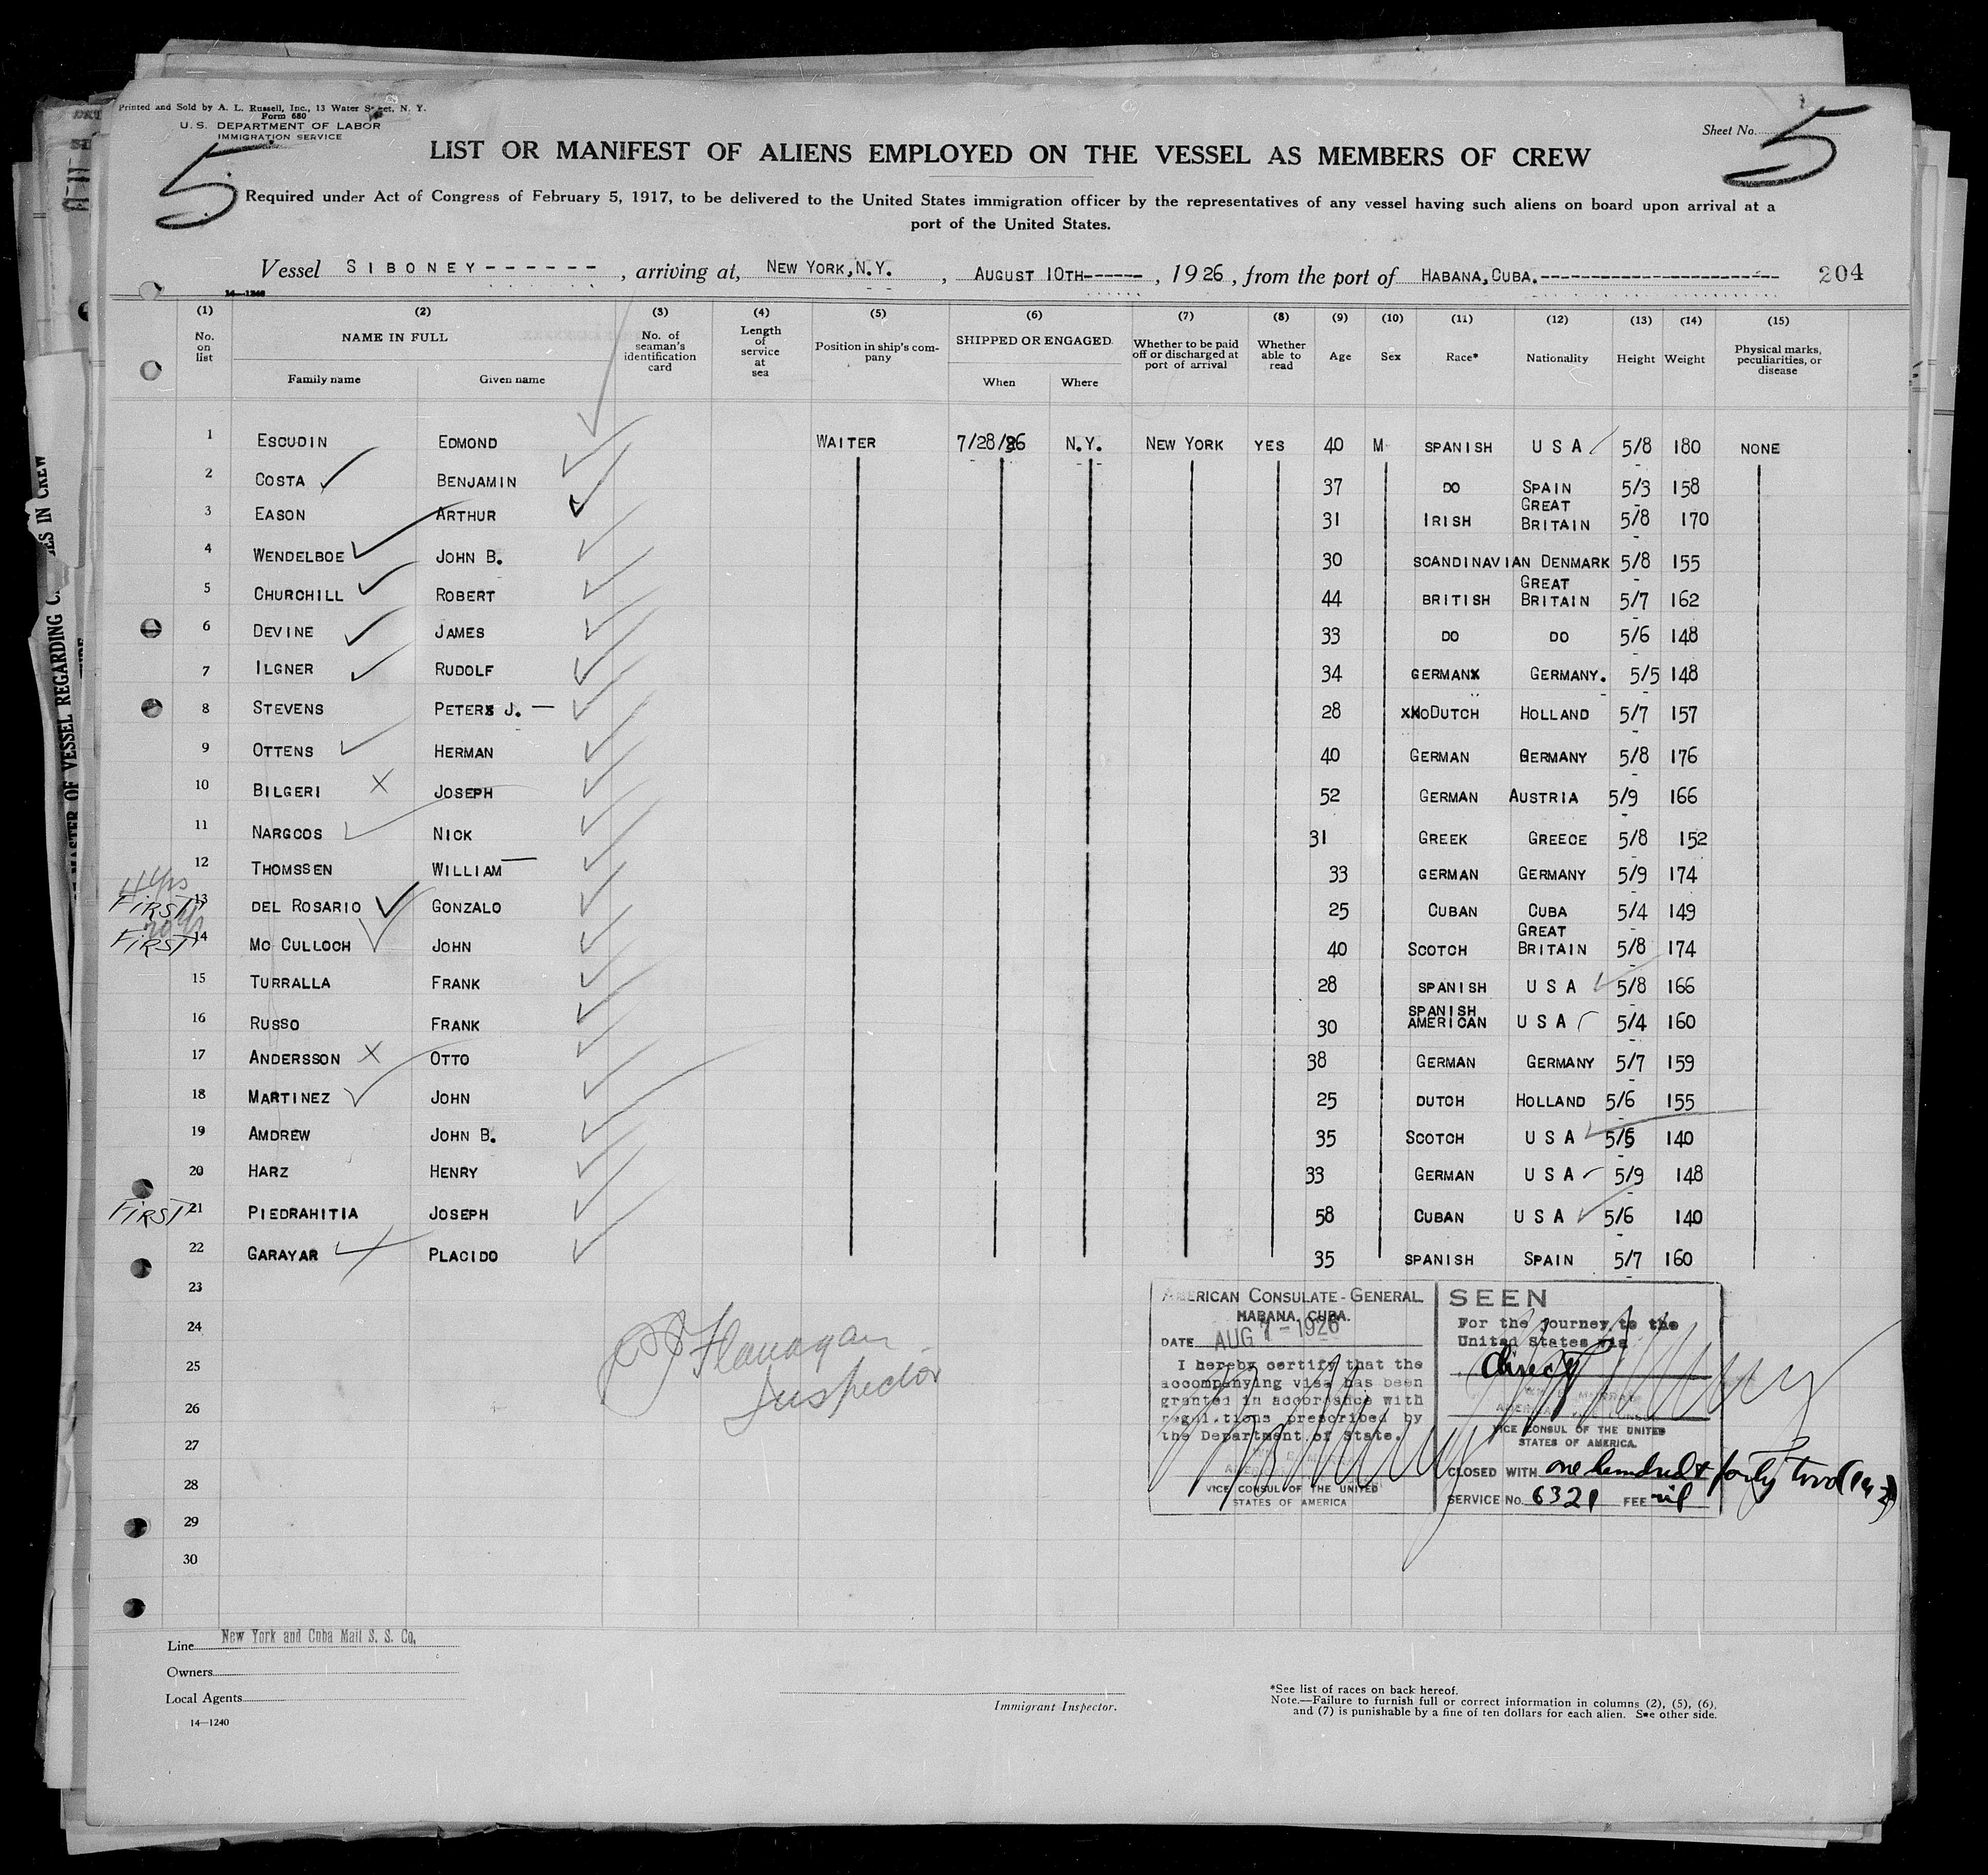 Printed and Sold by A. L. Russell, Inc., 13 Water Street, N. Y.
Form 680
U. S. DEPARTMENT OF LABOR
IMMIGRATION SERVICE
Sheet No.
5
5
LIST OR MANIFEST OF ALIENS EMPLOYED ON THE VESSEL AS MEMBERS OF CREW
Required under Act of Congress of February 5, 1917, to be delivered to the United States immigration officer by the representatives of any vessel having such aliens on board upon arrival at a
port of the United States.
Vessel SIBONEY------, arriving at, NEW YORK, N.Y. , AUGUST 10TH------, 1926, from the port of HABANA, CUBA.------------------------ 204
14—1240
(1) (2) (3) (4) (5) (6) (7) (8) (9) (10) (11) (12) (13) (14) (15)
No. on list NAME IN FULL Family name Given name No. of seaman's identification card Length of service at sea Position in ship's company SHIPPED OR ENGAGED When Where Whether to be paid off or discharged at port of arrival Whether able to read Age Sex Race* Nationality Height Weight Physical marks, peculiarities, or disease
1 ESCUDIN EDMOND WAITER 7/28/26 N.Y. NEW YORK YES 40 M SPANISH U S A 5/8 180 NONE
2 COSTA BENJAMIN 37 DO SPAIN 5/3 158
3 EASON ARTHUR 31 IRISH GREAT BRITAIN 5/8 170
4 WENDELBOE JOHN B. 30 SCANDINAVIAN DENMARK 5/8 155
5 CHURCHILL ROBERT 44 BRITISH GREAT BRITAIN 5/7 162
6 DEVINE JAMES 33 DO DO 5/6 148
7 ILGNER RUDOLF 34 GERMANX GERMANY. 5/5 148
8 STEVENS PETERX J. — 28 XXODUTCH HOLLAND 5/7 157
9 OTTENS HERMAN 40 GERMAN GERMANY 5/8 176
10 BILGERI X JOSEPH 52 GERMAN AUSTRIA 5/9 166
11 NARGOOS NICK 31 GREEK GREECE 5/8 152
12 THOMSSEN WILLIAM — 33 GERMAN GERMANY 5/9 174
4 yrs
FIRST 13 DEL ROSARIO GONZALO 25 CUBAN CUBA 5/4 149
FIRST 14 MC CULLOCH JOHN 40 SCOTCH GREAT BRITAIN 5/8 174
15 TURRALLA FRANK 28 SPANISH U S A 5/8 166
16 RUSSO FRANK 30 SPANISH AMERICAN U S A 5/4 160
17 ANDERSSON X OTTO 38 GERMAN GERMANY 5/7 159
18 MARTINEZ JOHN 25 DUTCH HOLLAND 5/6 155
19 AMDREW JOHN B. 35 SCOTCH U S A 5/5 140
20 HARZ HENRY 33 GERMAN U S A 5/9 148
FIRST 21 PIEDRAHITIA JOSEPH 58 CUBAN U S A 5/6 140
22 GARAYAR PLACIDO 35 SPANISH SPAIN 5/7 160
23
24
25
26
27
28
29
30
Flanagan
Inspector
AMERICAN CONSULATE-GENERAL
HABANA, CUBA.
DATE AUG 7-1926
I hereby certify that the
accompanying visa has been
granted in accordance with
regulations prescribed by
the Department of State.
VICE CONSUL OF THE UNITED
STATES OF AMERICA
SEEN
For the journey to the
United States via
direct
VICE CONSUL OF THE UNITED
STATES OF AMERICA.
CLOSED WITH one hundred & forty two (142)
SERVICE No. 6321 FEE nil
Line New York and Cuba Mail S. S. Co.
Owners
Local Agents
14—1240
Immigrant Inspector.
*See list of races on back hereof.
Note.—Failure to furnish full or correct information in columns (2), (5), (6),
and (7) is punishable by a fine of ten dollars for each alien. See other side.
MASTER OF VESSEL REGARDING
IN CREW